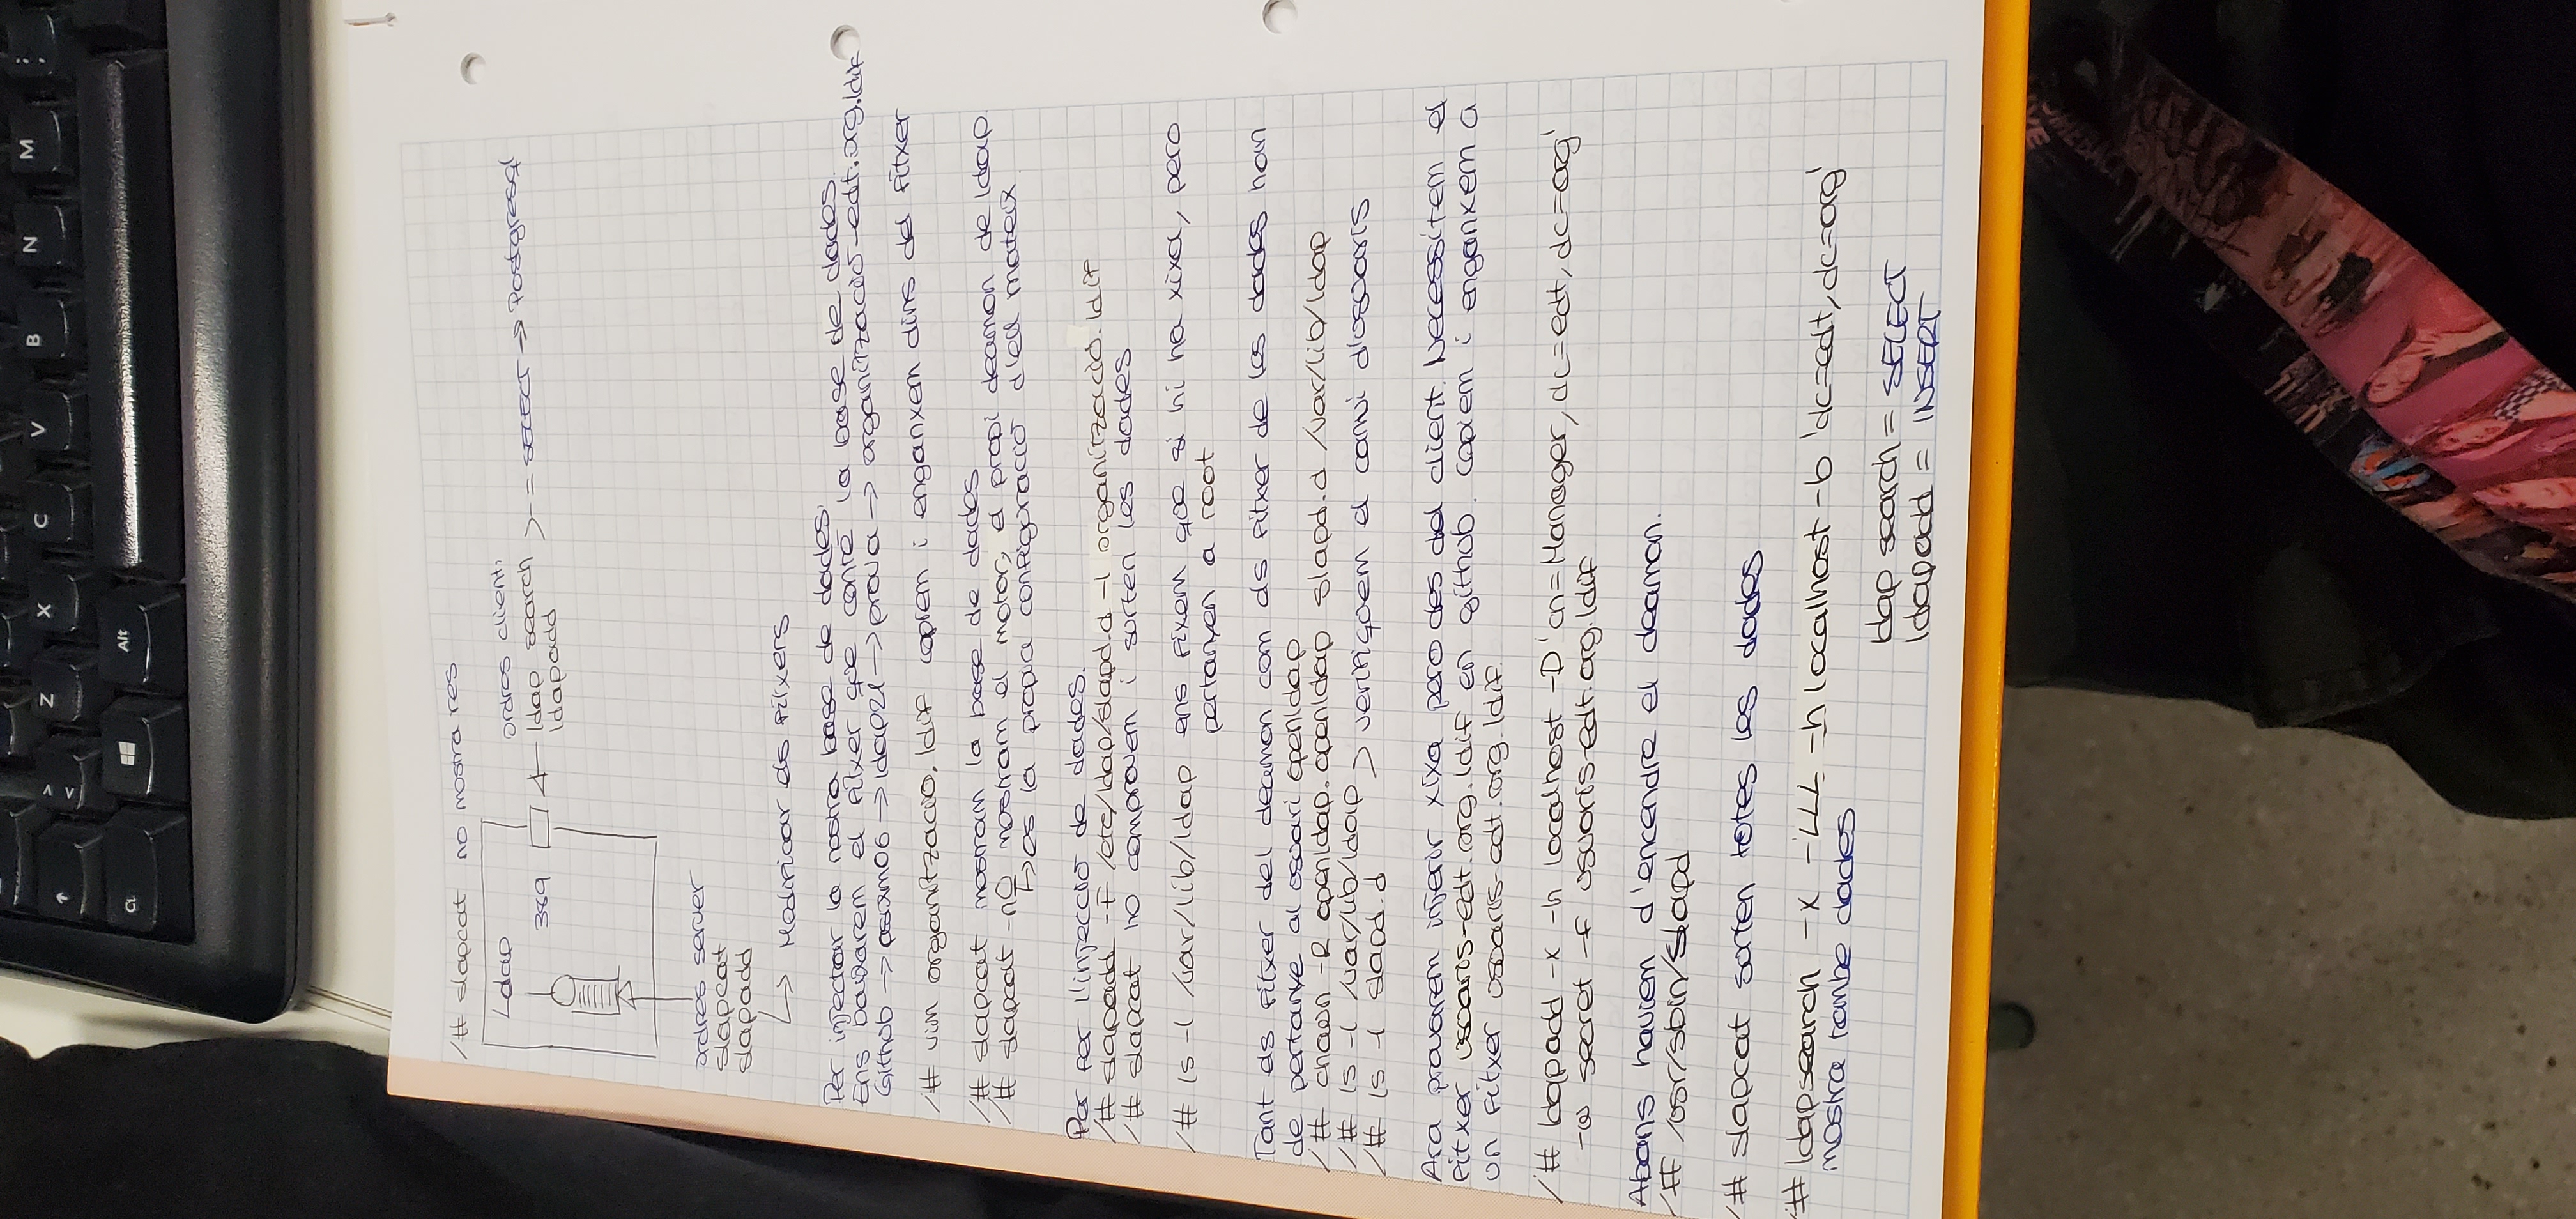 Z X C V B N M ;
> <
Ct Alt
/# slapcat no mostra res
Ldap
389
ordres client:
ldap search >- = SELECT → Postgresql
ldapadd
ordres server
slapcat
slapadd
↳ Modificar els fitxers
Per injectar la nostra base de dades:
Ens baixarem el fitxer que conté la base de dades.
Github → → ldap21 → prova → organitzacio-edt.org.ldif
/# vim organitzacio.ldif copiem i enganxem dins del fitxer
/# slapcat mostram la base de dades
/# slapcat -n0 mostram el motor, el propi deamon de ldap.
↳ es la propia configuracció d'ell mateix
Per fer l'injecció de dades.
/# slapadd -F /etc/ldap/slapd.d -l organització.ldif
/# slapcat ho comprovem i sorten les dades
/# ls -l /var/lib/ldap ens fixem que si hi ha xixa, pero
pertanyen a root
Tant els fitxer del deamon com els fitxer de les dades han
de pertanye al usuari openldap
/# chown -R openldap.openldap slapd.d /var/lib/ldap
/# ls -l /var/lib/ldap > verifiquem el canvi d'usuaris
/# ls -l slapd.d
Ara provarem inferir xixa pero des del client. Necessitem el
fitxer usuaris-edt.org.ldif en github. copiem i enganxem a
un fitxer usuaris-edt.org.ldif.
/# ldapadd -x -h localhost -D 'cn=Manager,dc=edt,dc=org'
-w secret -f usuaris-edt.org.ldif
Abans haviem d'encendre el deamon.
/# /usr/sbin/slapd
/# slapcat sorten totes les dades
/# ldapsearch -x -LLL -h localhost -b 'dc=edt,dc=org'
mostra tambe dades
ldap search = SELECT
ldapadd = INSERT